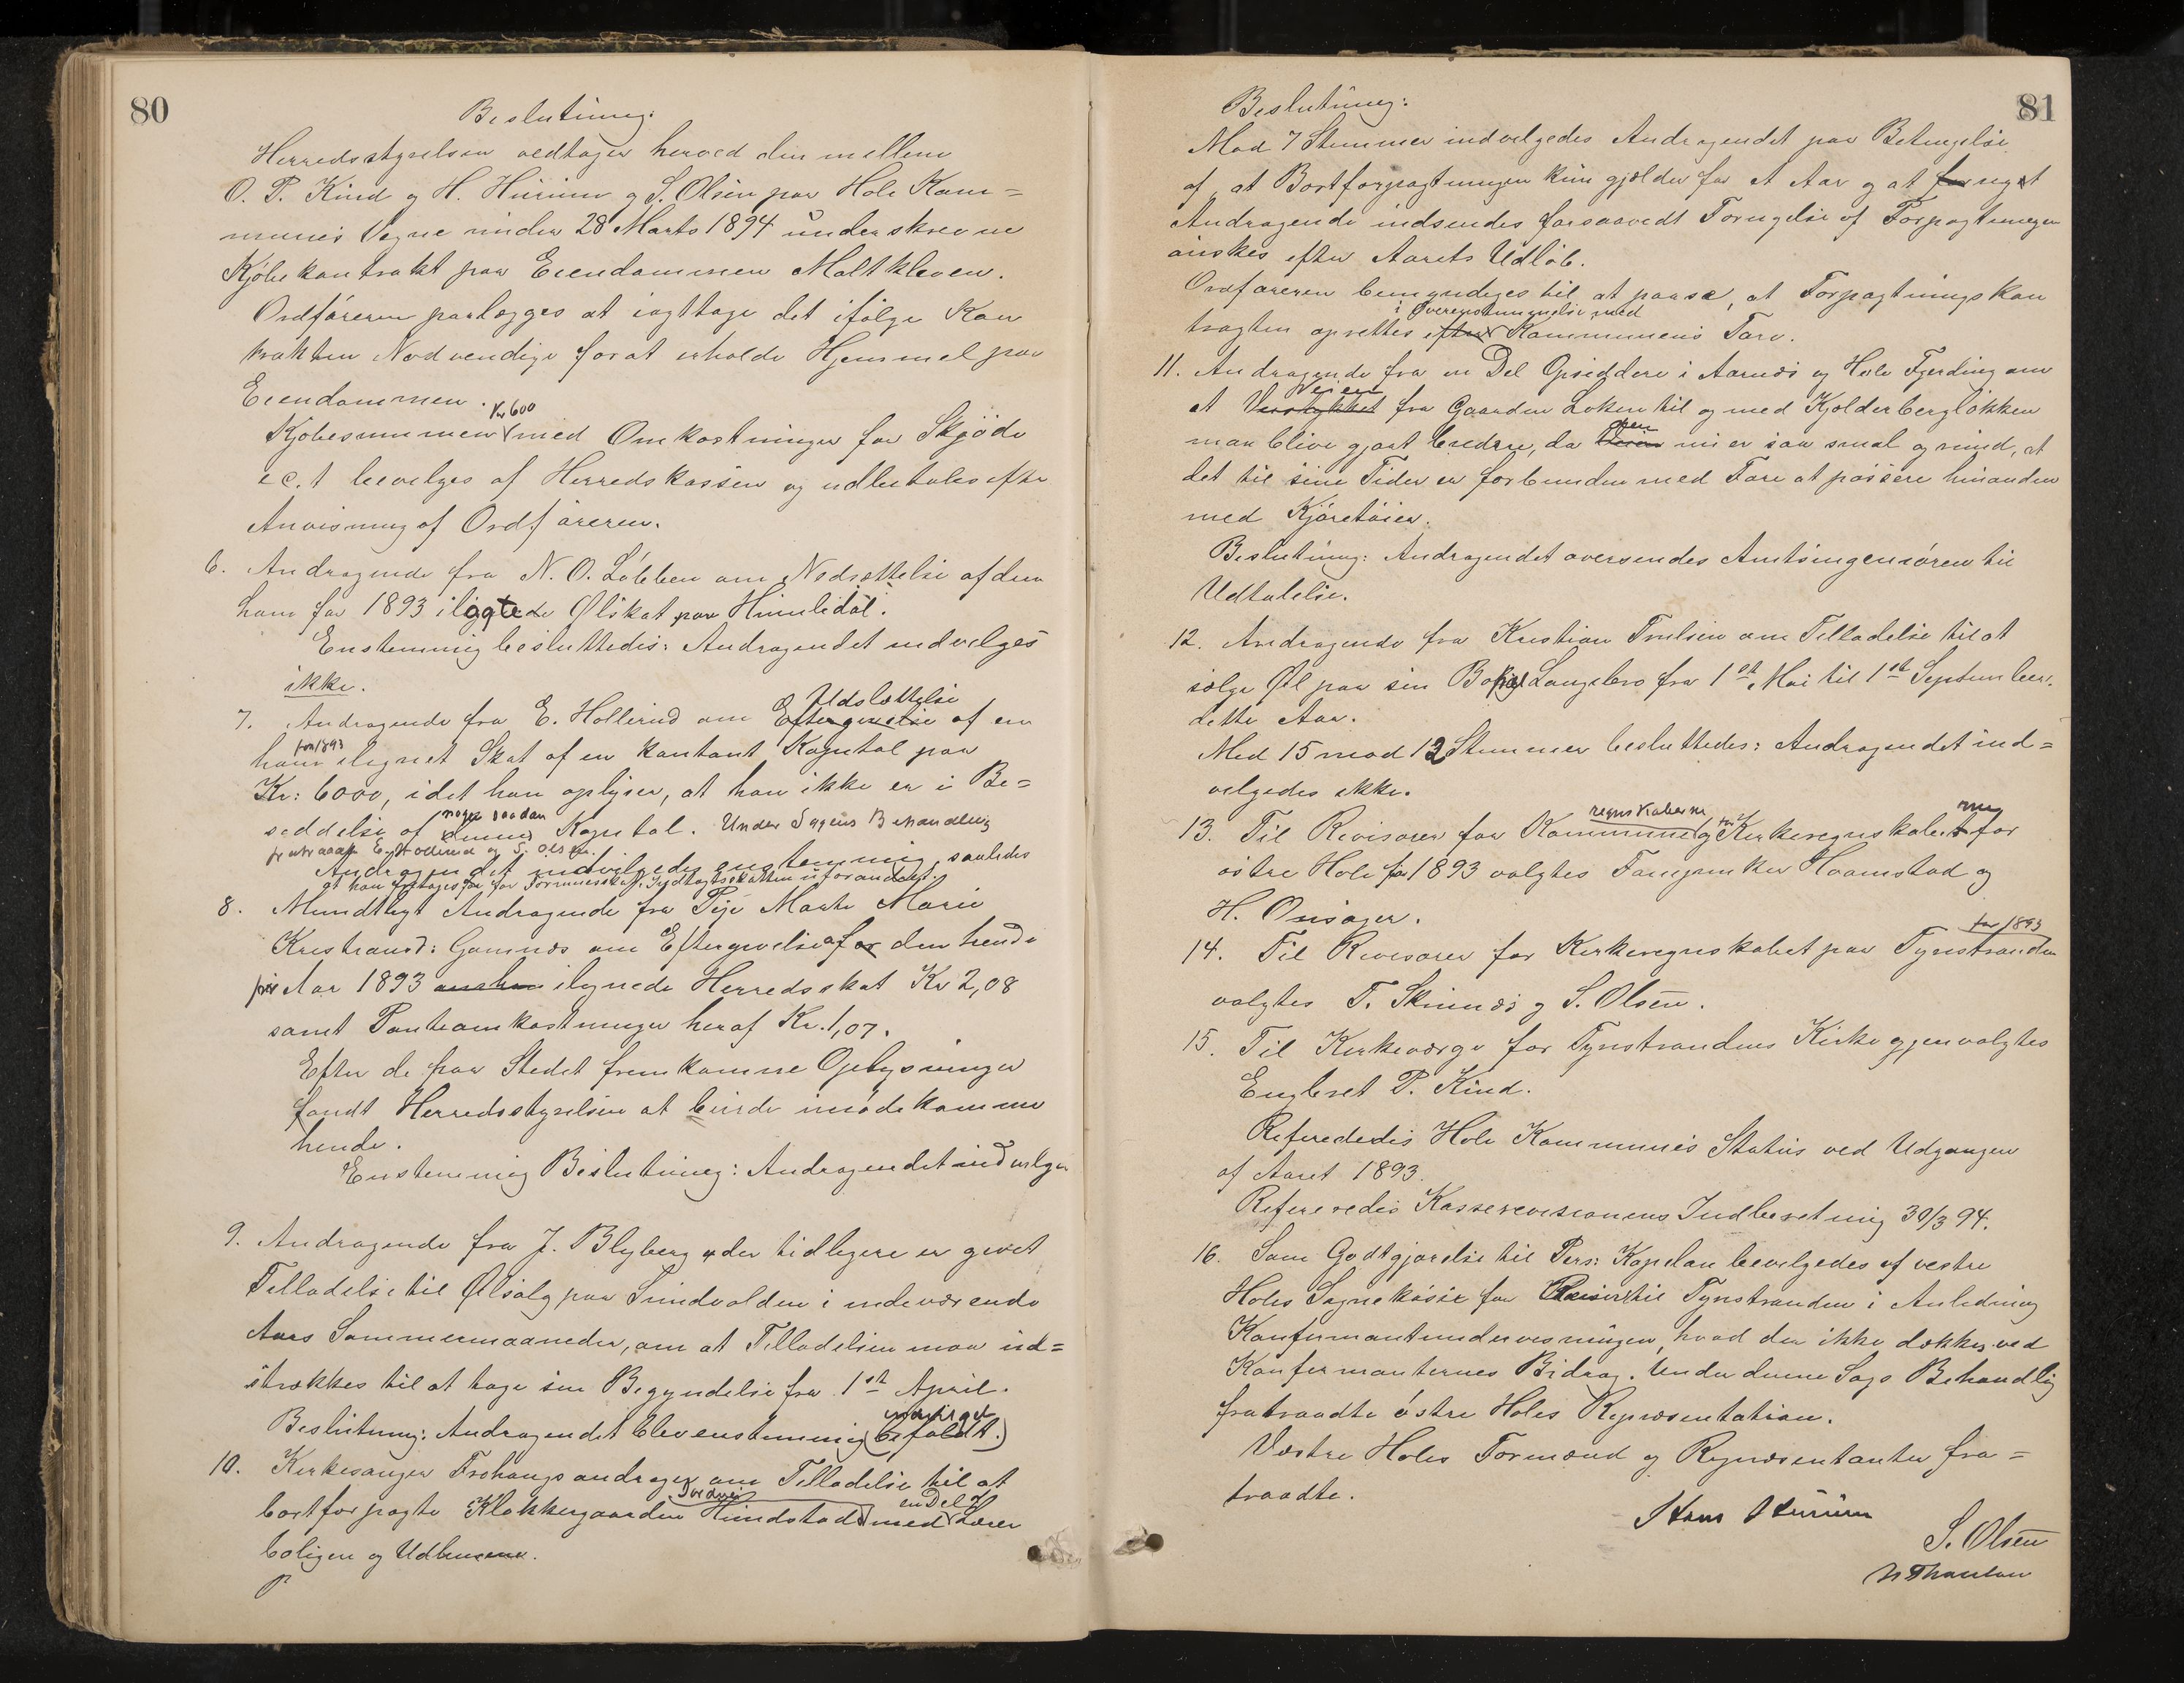 80
Beslutning:
Herredsstyrelsen vedtager herved den mellem
O. P. Kind og H. Hurum og S. Olsen paa Hole Kom=
munes Vegne under 28 Marts 1894 underskrevne
Kjöbekontrakt paa Eiendommen Moltkleven.
Ordföreren paalægges at iagttage det ifölge Kon
trakten Nødvendige for at erholde Hjemmel paa
Eiendommen.
Kr 600
Kjöbesummen med Omkostninger for Skjöde
ec.t bevilges af Herredskassen og udbetales efter
Anvisning af Ordföreren.
6. Andragende fra N. O. Löbben om Nedsættelse af den
ham for 1893 ilagte Ølskat paa Humledal.
Enstemmig besluttedes: Andragendet indvilges
ikke.
Udslettelse
7. Andragende fra E. Hollerud om Eftergivelse af en
for 1893
ham ilignet Skat af en kontant Kapital paa
Kr: 6000, idet han oplyser, at han ikke er i Be=
nogen saadan
siddelse af denne Kapital. Under Sagens Behandling
fratraadte E. Hollerud og S. Olsen.
Andragendet indvilgedes enstemmig, saaledes
at han fritages for Formuesskat, Indtægtsskatten uforandret.
8. Mundtligt Andragende fra Pige Marte Marie
Kristiansd: Gomnæs om Eftergivelse af den hende
for Aar 1893 ilignede Herredsskat Kr 2,08
samt Panteomkostninger heraf Kr. 1,07.
Efter de paa Stedet fremkomne Oplysninger
fandt Herredsstyrelsen at burde imødekomme
hende.
Enstemmig Beslutning: Andragendet indvilges
9. Andragende fra J. Blyberg, der tidligere er givet
Tilladelse til Ølsalg paa Sundvolden i indeværende
Aars Sommermaaneder, om at Tilladelsen maa ud=
strækkes til at tage sin Begyndelse fra 1st April.
indvilget
Beslutning: Andragendet blev enstemmig (bifaldt.)
10. Kirkesanger Frohaug andrager om Tilladelse til at
Jordvei en Del af
bortforpagte Klokkergaarden Hundstad med Lærer
boligen og Udhusene.
81
Beslutning:
Mod 7 Stemmer indvilgedes Andragendet paa Betingelse
af, at Bortforpagtningen kun gjælder for et Aar og at for nyt
Andragende indsendes forsaavidt Fornyelse af Forpagtningen
önskes efter Aarets Udlöb.
Ordföreren bemyndiges til at paase, at Forpagtningskon
i Overensstemmelse med
trakten oprettes efter Kommunens Tarv.
11. Andragende fra en Del Opsiddere i Aarnæs og Hole Fjerding om
Veien
at Veistykket fra Gaarden Löken til og med Kjelderberglökken
maa blive gjort bredere, da Veien nu er saa smal og uind, at
det til sine Tider er forbunden med Fare at passere hinanden
med Kjøretøier.
Beslutning: Andragendet oversendes Amtsingeniören til
Udtalelse.
12. Andragende fra Kristian Trulsen om Tilladelse til at
sælge Øl paa sin Bopæl Langebro fra 1st Mai til 1st September
dette Aar.
Med 15 mod 12 Stemmer besluttedes: Andragendet ind=
vilgedes ikke.
regnskaberne
13. Til Revisorer for Kommune og Kirkeregnskabet for
östre Hole for 1893 valgtes Fanejunker Hvamstad og
H. Onsager.
for 1893
14. Til Revisorer for Kirkeregnskabet paa Tyristranden
valgtes T. Skinnæs og S. Olsen.
15. Til Kirkeværge for Tyristrandens Kirke gjenvalgtes
Engebret P. Kind.
Refereredes Hole Kommunes Status ved Udgangen
af Aaret 1893.
Refereredes Kasserevisionens Indberetning 30/3 94.
16. Som Godtgjørelse til Pers: Kapelan bevilgedes af vestre
Holes Sognekasse for Reiser til Tyristranden i Anledning
Konfirmantundervisningen, hvad der ikke dækkes ved
Konfirmanternes Bidrag. Under denne Sags Behandlig
fratraadte östre Holes Repræsentation.
Vestre Holes Formænd og Repræsentanter fra=
traadte.
Hans Hurum
S. Olsen